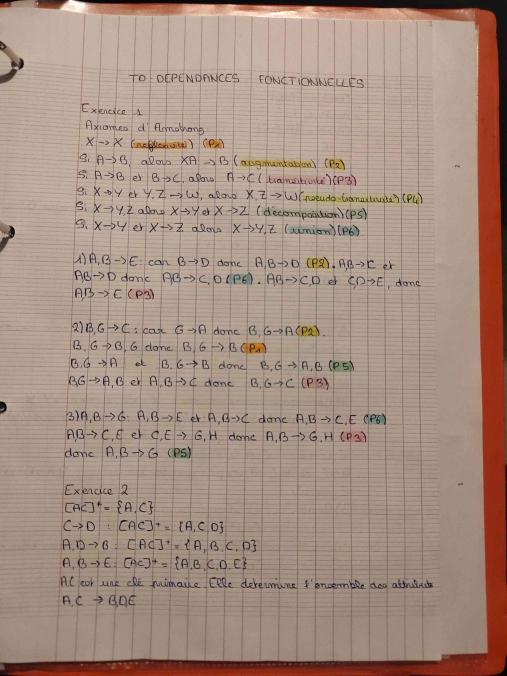 TD DEPENDANCES FONCTIONNELLES
Exercice 1
Axiomes d'Armstrong
X → X (reflexivité) (P1)
Si A → B, alors XA → B (augmentation) (P2)
Si A → B et B → C, alors A → C (transitivité) (P3)
Si X → Y et Y,Z → W, alors X,Z → W (pseudo-transitivité) (P4)
Si X → Y,Z alors X → Y et X → Z (décomposition) (P5)
Si X → Y et X → Z alors X → Y,Z (union) (P6)
1) A,B → E : car B → D donc A,B → D (P2). AB → C et
AB → D donc AB → C,D (P6). AB → C,D et C,D → E, donc
AB → E (P3)
2) B,G → C : car G → A donc B,G → A (P2).
B,G → B,G donc B,G → B (P1)
B,G → A et B,G → B donc B,G → A,B (P5)
B,G → A,B et A,B → C donc B,G → C (P3)
3) A,B → G : A,B → E et A,B → C donc A,B → C,E (P6)
AB → C,E et C,E → G,H donc A,B → G,H (P3)
donc A,B → G (P5)
Exercice 2
[AC]⁺ = {A,C}
C → D : [AC]⁺ = {A,C,D}
A,D → B : [AC]⁺ = {A,B,C,D}
A,B → E : [AC]⁺ = {A,B,C,D,E}
AC est une clé primaire. Elle determine l'ensemble des attributs
A,C → B,D,E